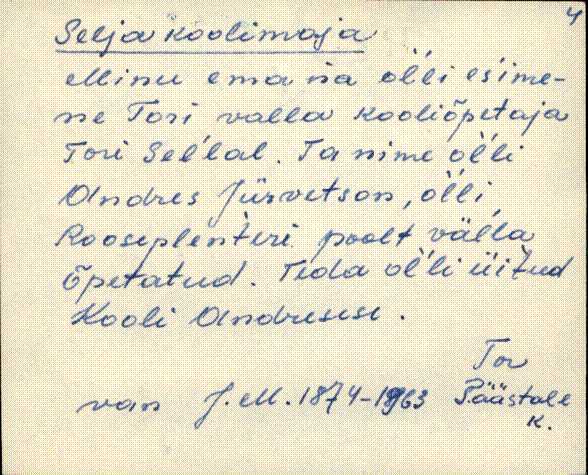 4
Selja koolimaja
Minu ema isa ol̀li eśime-
ne Tori valla kooliõpetaja
Tori Sel̀lal. Ta nime ol̀li
Andres Jürvetson, ol̀li
Rooseplènteri poolt väl̀la
õpetatud. Teda ol̀li üitud
Kooli Andresese.
Tor
van J. M. 1874-1963 Päästale
k.